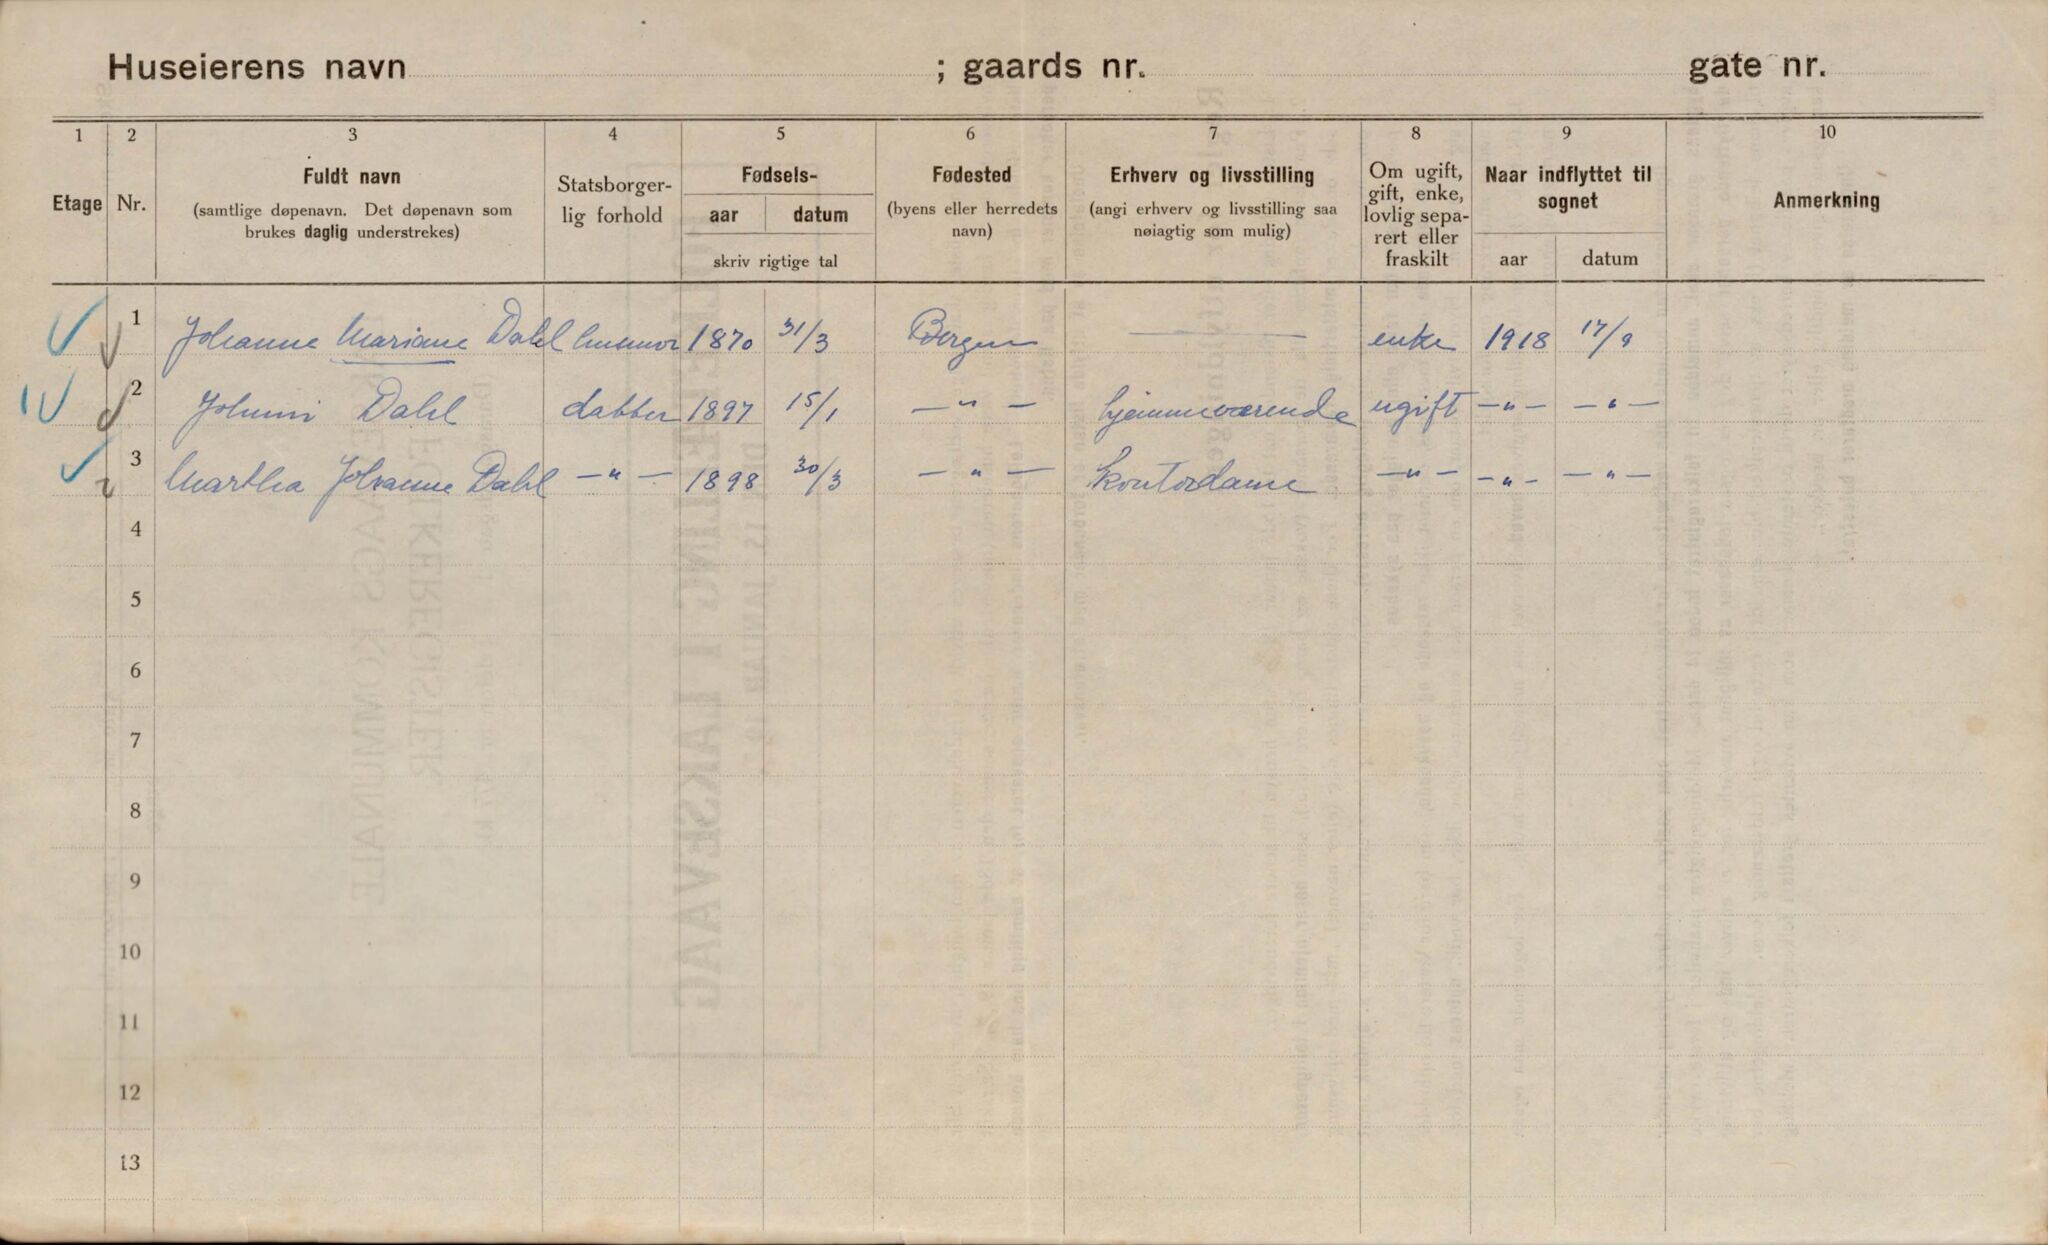 Huseierens navn ; gaards nr. gate nr.
1 2 3 4 5 6 7 8 9 10
Etage Nr. Fuldt navn (samtlige døpenavn. Det døpenavn som brukes daglig understrekes) Statsborgerlig forhold Fødsels- aar datum skriv rigtige tal Fødested (byens eller herredets navn) Erhverv og livsstilling (angi erhverv og livsstilling saa nøiagtig som mulig) Om ugift, gift, enke, lovlig separert eller fraskilt Naar indflyttet til sognet aar datum Anmerkning
1 Johanne Mariane Dahl husmor 1870 31/3 Bergen — enke 1918 17/9
2 Johnni Dahl datter 1897 15/1 —"— hjemmeværende ugift —"— —"—
3 Martha Johanne Dahl —"— 1898 30/3 —"— kontordame —"— —"— —"—
4
5
6
7
8
9
10
11
12
13